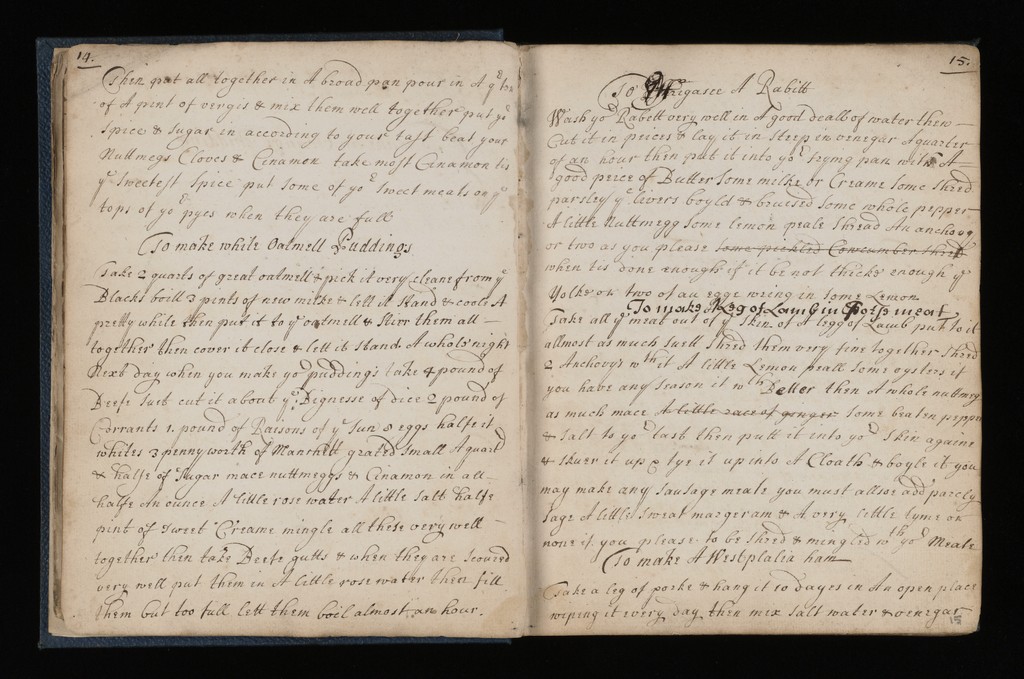 14.
Then put all together in A broad pan pour in A qr too
of A pint of vergis & mix them well together put yr
Spice & Sugar in according to your tast beat your
Nuttmegs Cloves & Cinamen take most Cinamon tis
ye sweetest spice put some of yor sweet meats on ye
tops of yor pyes when they are full
To make white Oatmell Puddings
Take 2 quarts of great oatmell & pick it very cleane from ye
Blacks boill 3 pints of new milke & lett it stand & coole A
pretty while then put it to yr oatmell & stirr them all
together then cover it close & lett it stand A whole night
Next day when you make yor puddings take 4 pound of
Beefe suet cut it about ye Bignesse of dice 2 pound of
Corrants 1 pound of Raisons of ye sun 8 eggs halfe ye
whites 3 penny worth of Manchett grated small A quart
& halfe of Sugar mace nuttmeggs & Cinamon in all
halfe an ounce A little rose water A little salt halfe
pint of sweet Creame mingle all these very well
together then take Beefe gutts & when they are scoured
very well put them in A little rose water then fill
them but too full lett them boil almost an hour.
15.
To Frigasee A Rabitt
Wash yor Rabett very well in A good deall of water then
Cut it in peices & lay it in steep in venegar A quarter
of an hour then put it into yor frying pan with A
good peice of Butter some milke or Creame some shred
parsley ye livers boyld & bruised some whole pepper
A little Nuttmegg some lemon peale shread An anchovy
or two as you please some pickled Cowcumber shred
when tis done enough if it be not thicke enough ye
Yolke or two of an egge wring in some Lemon
To make A Leg of Lamb in forse meat
Take all ye meat out of ye skin of A legg of Lamb put to it
allmost as much suett shred them very fine together shred
2 Anchovys wth it A little Lemon peall some oysters if
you have any season it wth Better then A whole nuttmeg
as much mace A little race of ginger some beaten pepper
& salt to yor tast then putt it into yor skin againe
& skuer it up & tye it up into A Cloath & boyle it you
may make any sausage meate you must allsoe add parcly
sage A little sweat margeram & A very little tyme or
none if you please to be shred & mingled wth yor Meate
To make A Westphalia ham
Take a leg of porke & hang it 10 dayes in An open place
wiping it every day then mix salt water & venegar
15